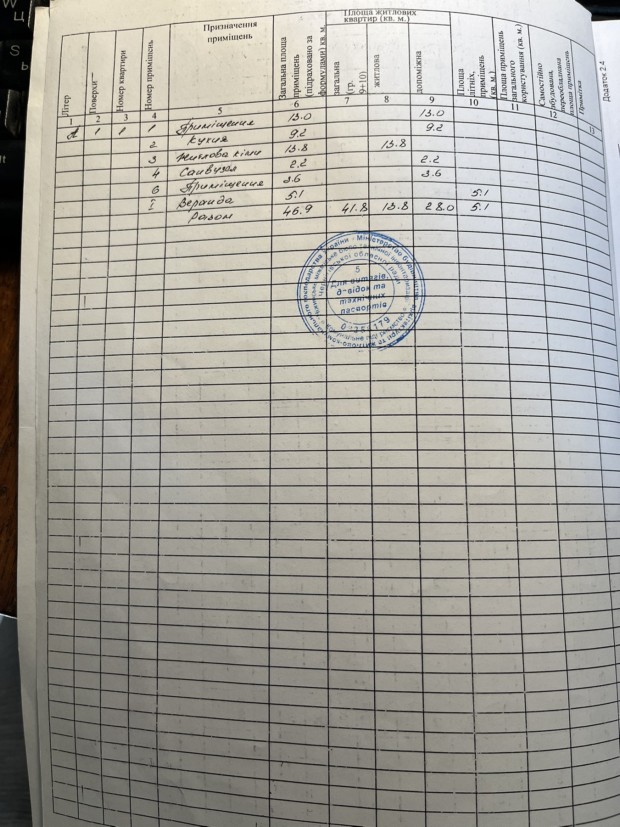 Додаток 2.4
Літер
Поверхи
Номер квартири
Номер приміщень
Призначення приміщень
Загальна площа приміщень (підраховано за формулами) кв. м.
Площа житлових квартир (кв. м.)
загальна (гр. 9+10)
житлова
допоміжна
Площа літніх, приміщень (кв. м.)
Площа приміщень загального користування (кв. м.)
Самостійно збудована, переобладнана площа приміщень
Примітка
1 2 3 4 5 6 7 8 9 10 11 12 13
А 1 1 1 Приміщення 13.0 13.0
2 Кухня 9.2 9.2
3 Житлова кімн 13.8 13.8
4 Санвузол 2.2 2.2
6 Приміщення 3.6 3.6
I Веранда 5.1 5.1
Разом 46.9 41.8 13.8 28.0 5.1
5
Для витягів,
довідок та
технічних
паспортів